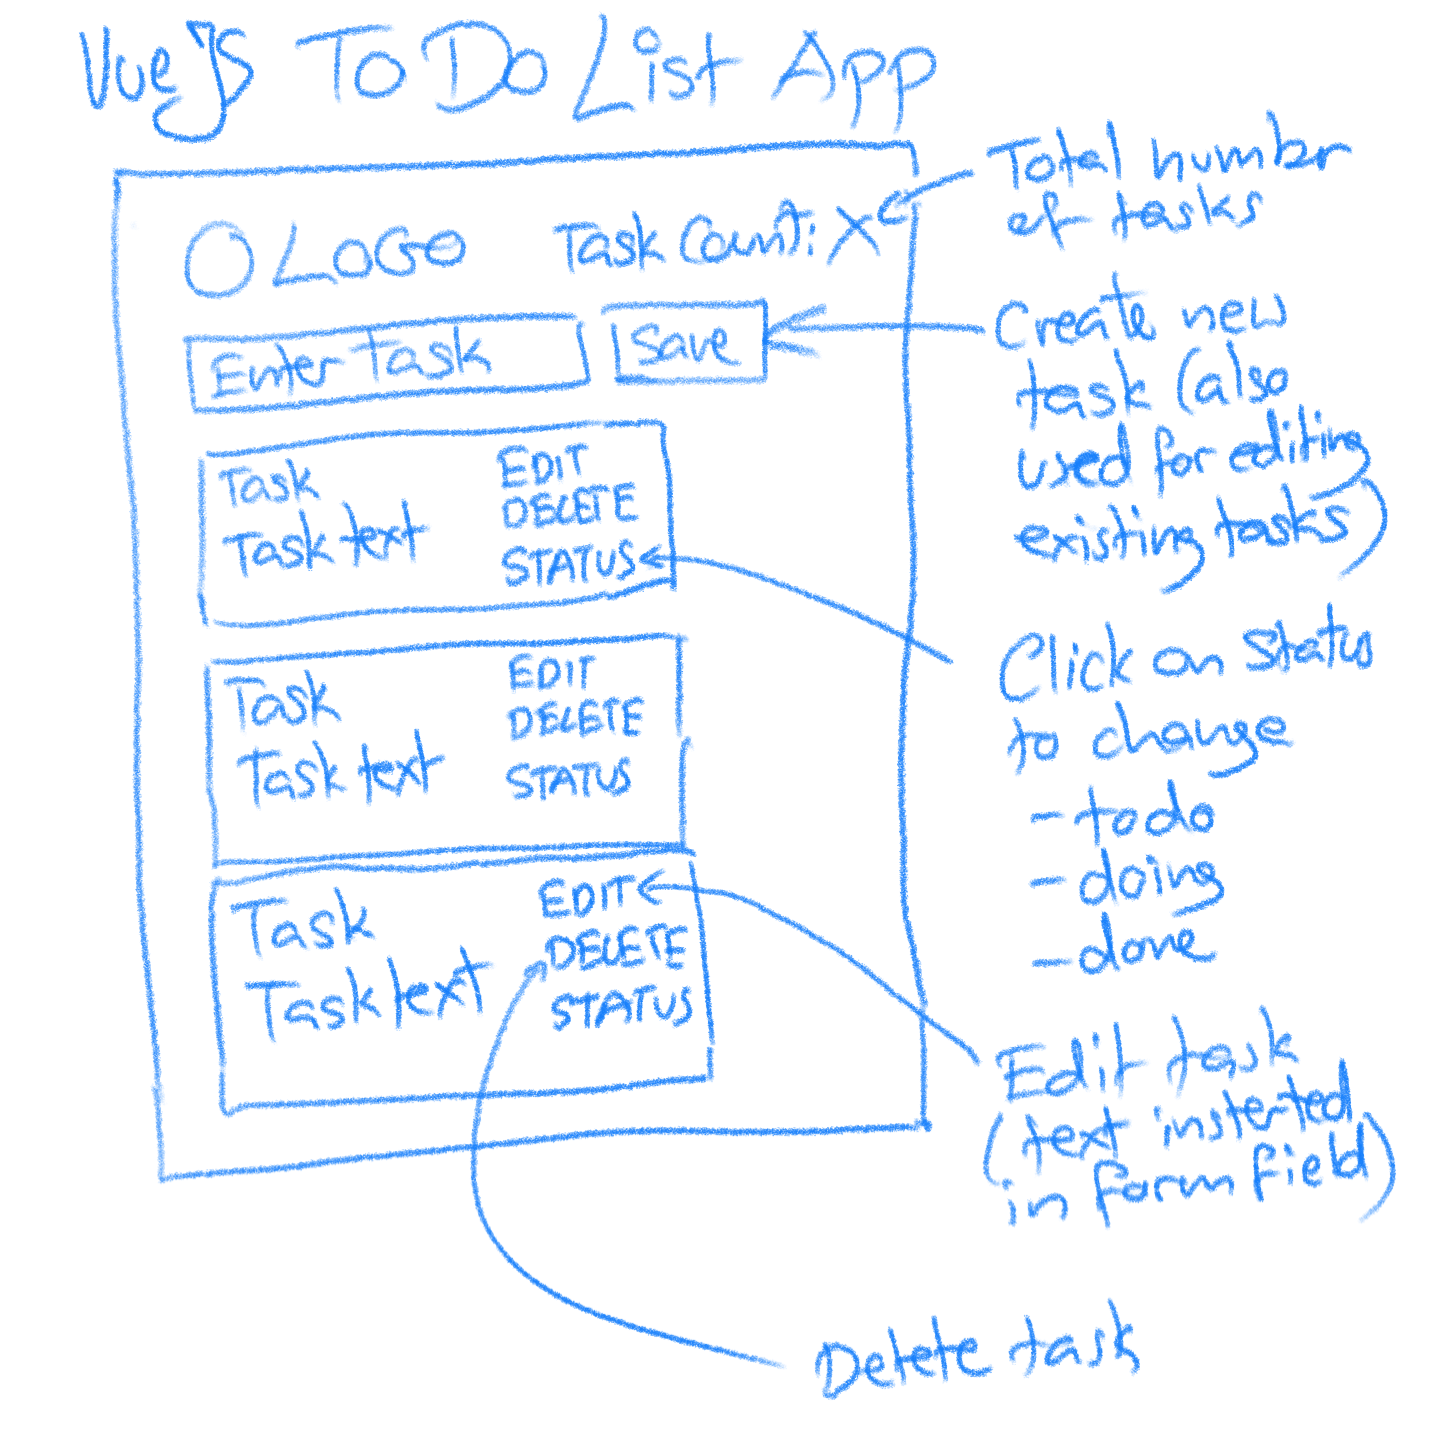 Vue JS To Do List App
LOGO Task Count: X
Enter Task Save
Task
Task text
EDIT
DELETE
STATUS
Task
Task text
EDIT
DELETE
STATUS
Task
Task text
EDIT
DELETE
STATUS
Total number
of tasks
Create new
task (also
used for editing
existing tasks)
Click on Status
to change
- todo
- doing
- done
Edit task
(text insterted
in form field)
Delete task